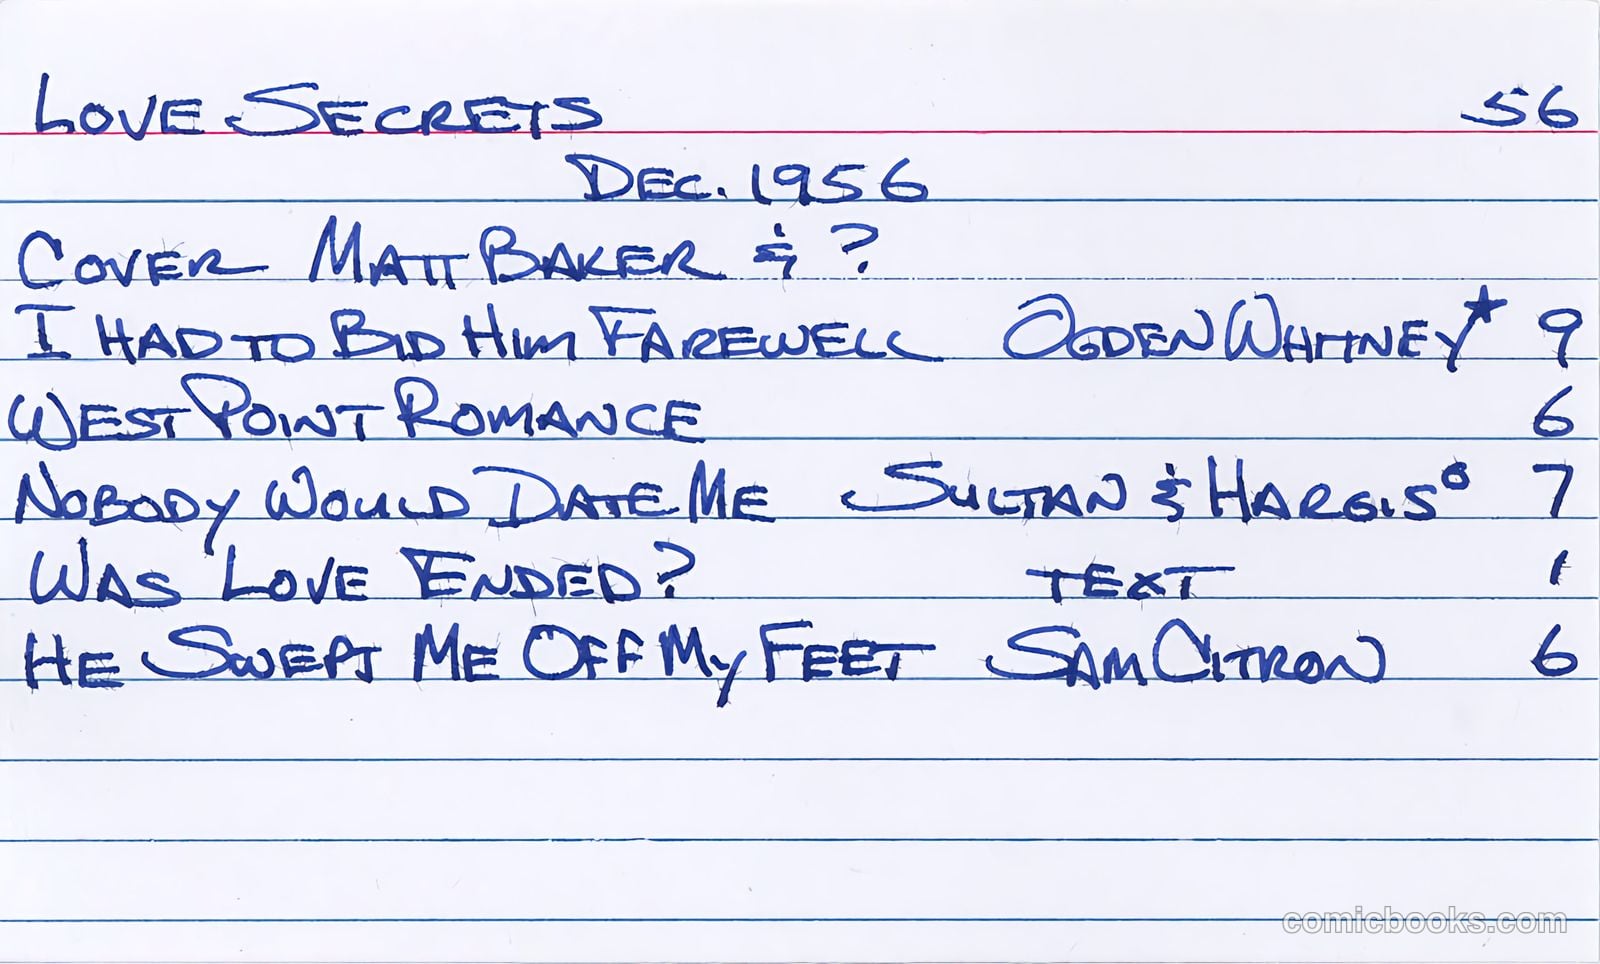 LOVE SECRETS 56
DEC. 1956
COVER MATT BAKER & ?
I HAD TO BID HIM FAREWELL OGDEN WHITNEY★ 9
WEST POINT ROMANCE 6
NOBODY WOULD DATE ME SULTAN & HARGIS° 7
WAS LOVE ENDED? TEXT 1
HE SWEPT ME OFF MY FEET SAM CITRON 6
comicbooks.com